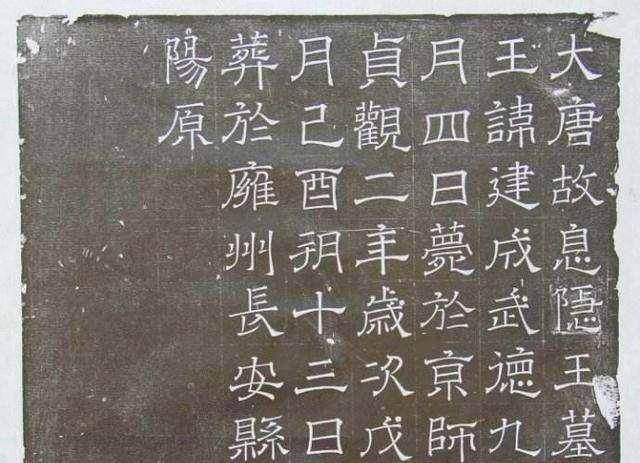 大唐故息隱王墓
王諱建成武德九
月四日薨於京師
貞觀二年歲次戊
月己酉朔十三日
葬於雍州長安縣
陽原